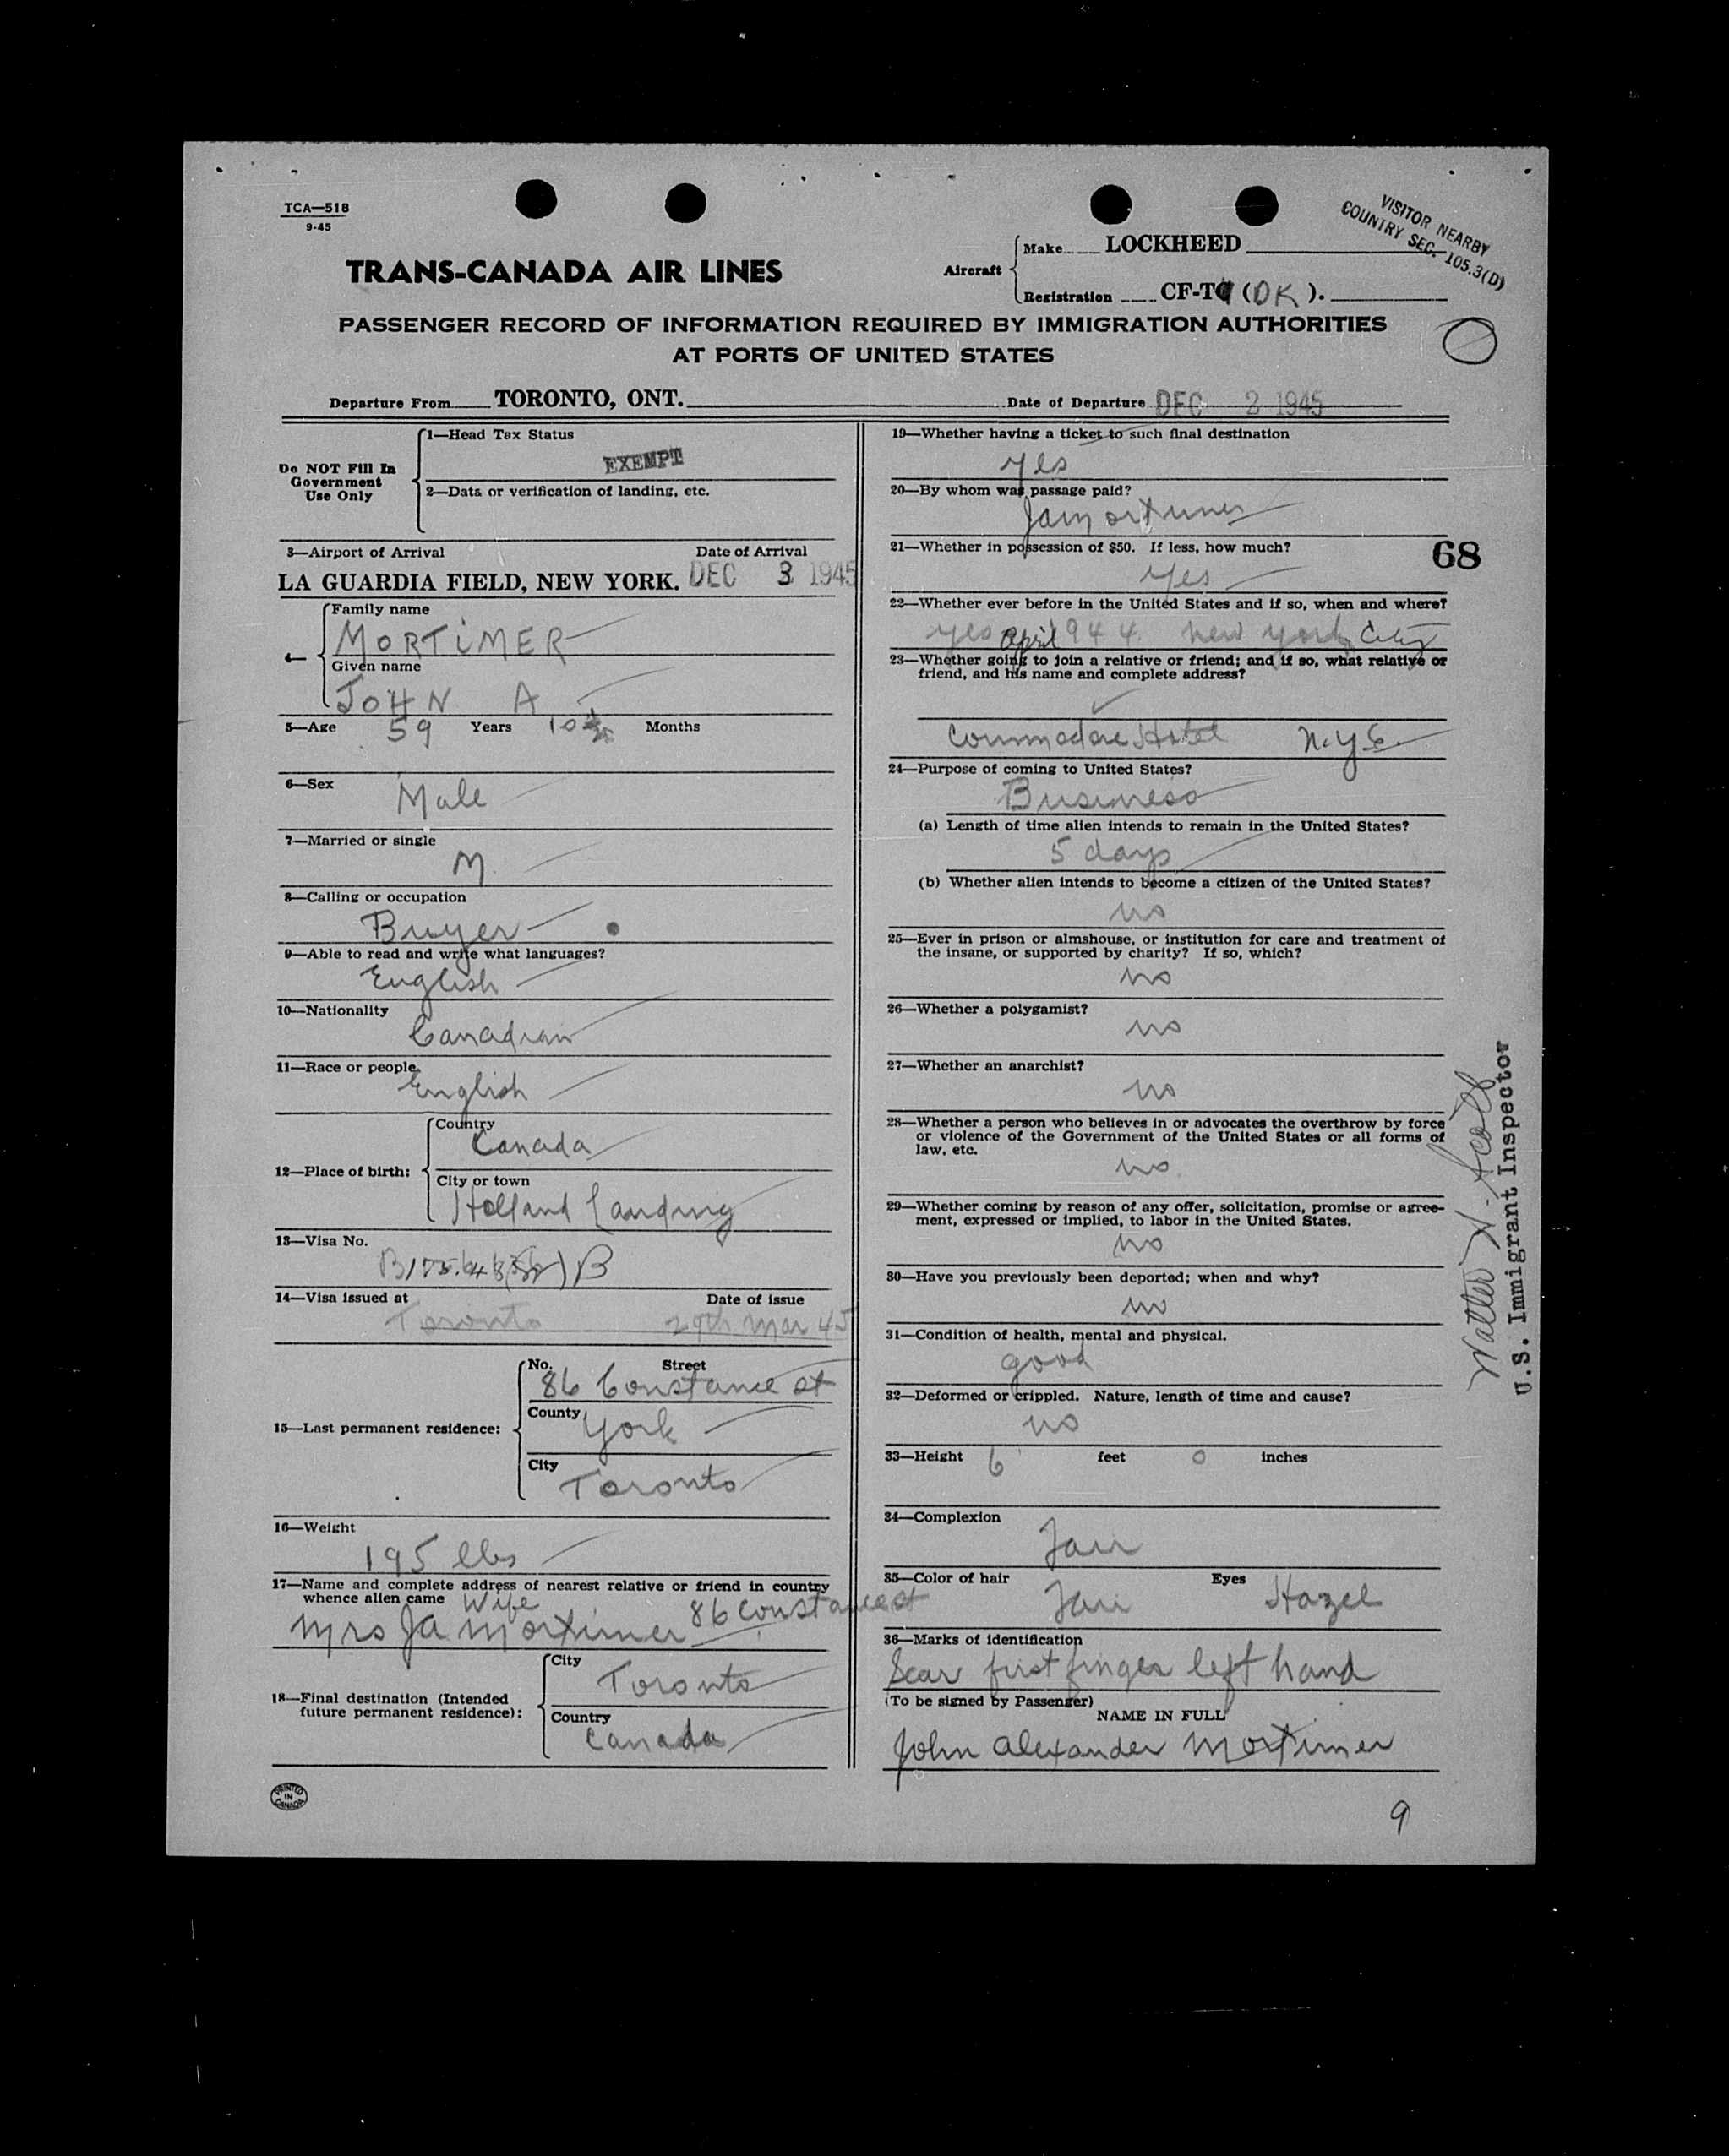 TCA—518
9-45
VISITOR NEARBY
COUNTRY SEC. 105.3(D)
TRANS-CANADA AIR LINES
Aircraft
Make LOCKHEED
Registration CF-TC (DK).
PASSENGER RECORD OF INFORMATION REQUIRED BY IMMIGRATION AUTHORITIES
AT PORTS OF UNITED STATES
Departure From TORONTO, ONT. Date of Departure DEC 2 1945
Do NOT Fill In
Government
Use Only
1—Head Tax Status
EXEMPT
2—Data or verification of landing, etc.
3—Airport of Arrival Date of Arrival
LA GUARDIA FIELD, NEW YORK. DEC 3 1945
4—
Family name
MORTIMER
Given name
JOHN A
5—Age 59 Years 10 Months
6—Sex
Male
7—Married or single
M
8—Calling or occupation
Buyer
9—Able to read and write what languages?
English
10—Nationality
Canadian
11—Race or people
English
12—Place of birth:
Country
Canada
City or town
Holland Landing
13—Visa No.
14—Visa issued at Date of issue
Toronto 29th Mar 45
15—Last permanent residence:
No. Street
86 Constance st
County
York
City
Toronto
16—Weight
195 lbs
17—Name and complete address of nearest relative or friend in country
whence alien came Wife 86 Constance st
Mrs JA Mortimer
18—Final destination (Intended
future permanent residence):
City
Toronto
Country
Canada
PRINTED
IN
CANADA
19—Whether having a ticket to such final destination
Yes
20—By whom was passage paid?
JA Mortimer
21—Whether in possession of $50. If less, how much?
68
Yes
22—Whether ever before in the United States and if so, when and where?
yes April 1944 new york City
23—Whether going to join a relative or friend; and if so, what relative or
friend, and his name and complete address?
Commodore Hotel N.Y.C.
24—Purpose of coming to United States?
Business
(a) Length of time alien intends to remain in the United States?
5 days
(b) Whether alien intends to become a citizen of the United States?
no
25—Ever in prison or almshouse, or institution for care and treatment of
the insane, or supported by charity? If so, which?
no
26—Whether a polygamist?
no
27—Whether an anarchist?
no
28—Whether a person who believes in or advocates the overthrow by force
or violence of the Government of the United States or all forms of
law, etc.
no
29—Whether coming by reason of any offer, solicitation, promise or agree-
ment, expressed or implied, to labor in the United States.
no
30—Have you previously been deported; when and why?
no
31—Condition of health, mental and physical.
good
32—Deformed or crippled. Nature, length of time and cause?
no
33—Height 6 feet 0 inches
34—Complexion
Fair
35—Color of hair Eyes
Fair Hazel
36—Marks of identification
Scar first finger left hand
(To be signed by Passenger)
NAME IN FULL
John Alexander Mortimer
9
Walter
U.S. Immigrant Inspector